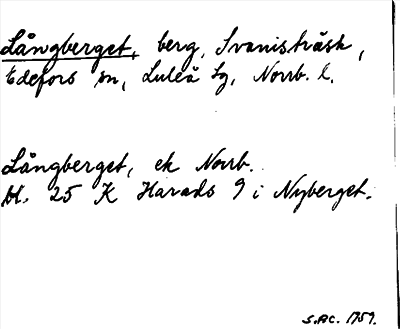 Långberget, berg, Svanisträsk,
Edefors sn, Luleå sg, Norrb. l.
Långberget, ek Norrb.
bl. 25 K Harads 9 i Nyberget.
S.AC. 1759.